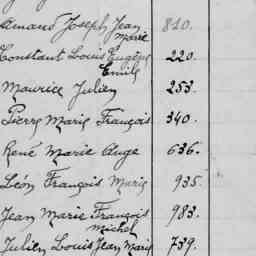 Armand Joseph Jean 810.
Marie
Constant Louis Eugène 220.
Emile
Maurice Julien 253.
Pierre Marie François 340.
René Marie Ange 636.
Léon François Marie 935.
Jean Marie François 983.
Michel
Julien Louis Jean Marie 739.